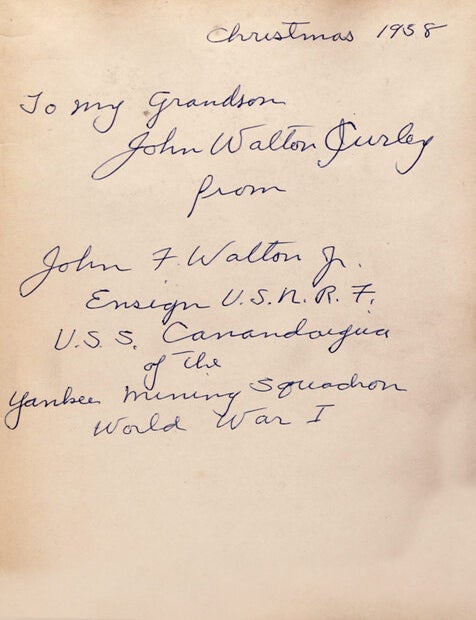 Christmas 1958
To my Grandson
John Walton Curley
from
John F. Walton Jr.
Ensign U.S.N.R.F.
U.S.S. Canandaigua
of the
Yankee Mining Squadron
World War I